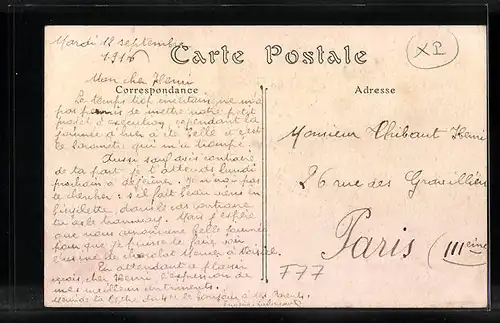 Mardi 12 septembre
1916
Carte Postale
XI
Mon cher Henri
Correspondance
Adresse
Le temps trop incertain ne m'a
pas permis de mettre notre petit
projet à exécution, cependant la
journée d'hier a été belle et c'est
le baromètre qui m'a trompé.
Aussi sauf avis contraire
de ta part je t'attends lundi
prochain à déjeuner. Je n'irai pas
te chercher; s'il fait beau viens en
bicyclette, dans le cas contraire
tu as le tramway. Mais j'espère
que nous aurons une belle journée
pour que je puisse te faire voir
l'usine de chocolat Menier à Noisiel.
En attendant ce plaisir
reçois cher Henri l'expression de
mes meilleurs sentiments.
Monsieur Thibaut Henri
26 rue des Gravilliers
Paris (IIIeme)
F77